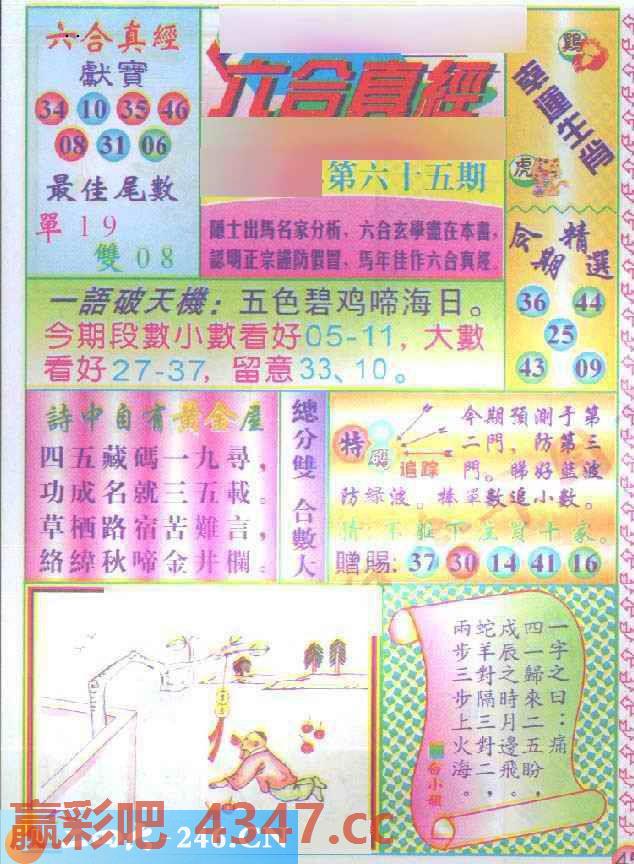 六合真經
獻寶
34 10 35 46
08 31 06
最佳尾數
單 19
雙 08
六合真經
第六十五期
隱士出馬名家分析、六合玄學盡在本書,
認明正宗謹防假冒、馬年佳作六合真經.
鷄
幸運生肖
虎
今期精選
36 44
25
43 09
一語破天機：五色碧鸡啼海日。
今期段數小數看好05-11，大數
看好27-37，留意33、10。
詩中自有黃金屋
四五藏碼一九尋，
功成名就三五載。
草栖路宿苦難言，
絡緯秋啼金井欄。
總分雙 合數大
特
追踪
今期預測于第
二門，防第三
門。睇好藍波
防绿波。搏單數追小數。
贈賜: 37 30 14 41 16
一字之曰：痛
四一歸來二五盼，
戌辰之時月邊飛。
蛇羊對隔三對二，
兩步三步上火海。
赢彩吧 4347.cc
246.CN